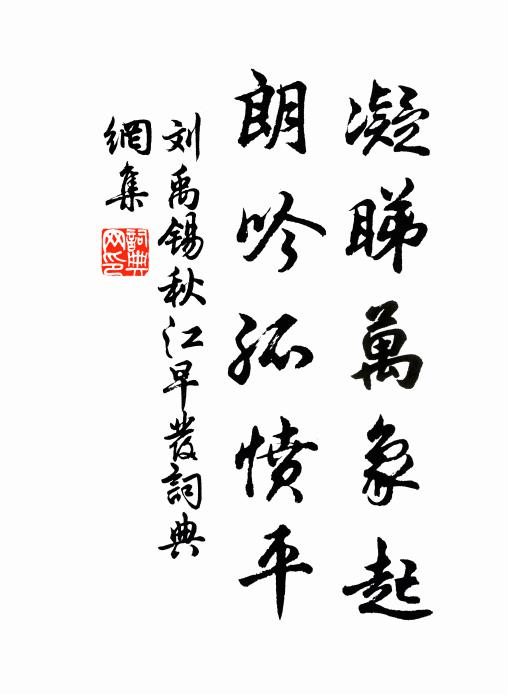 凝睇萬象起
朗吟孤憤平
刘禹锡秋江早發詞典
網集
詞典
网印